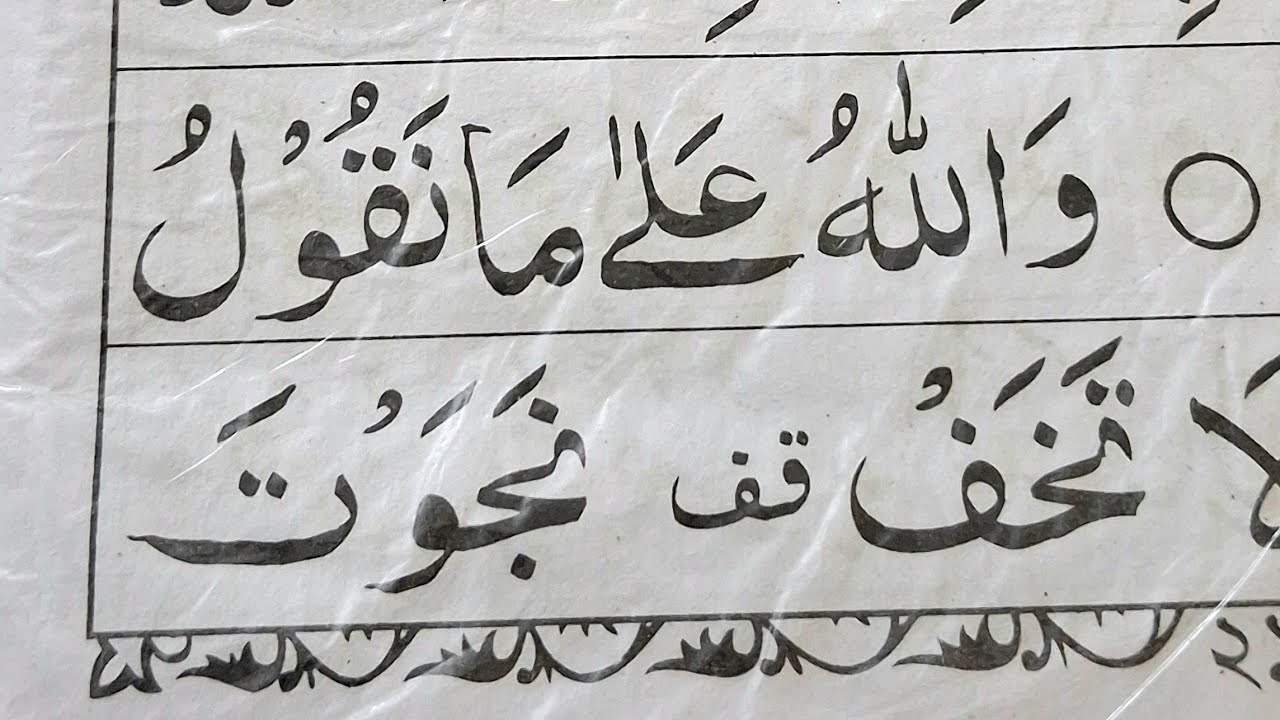 ○ وَاللّٰهُ عَلٰے مَا نَقُوْلُ
لَا تَخَفْ قف نَجَوْتَ